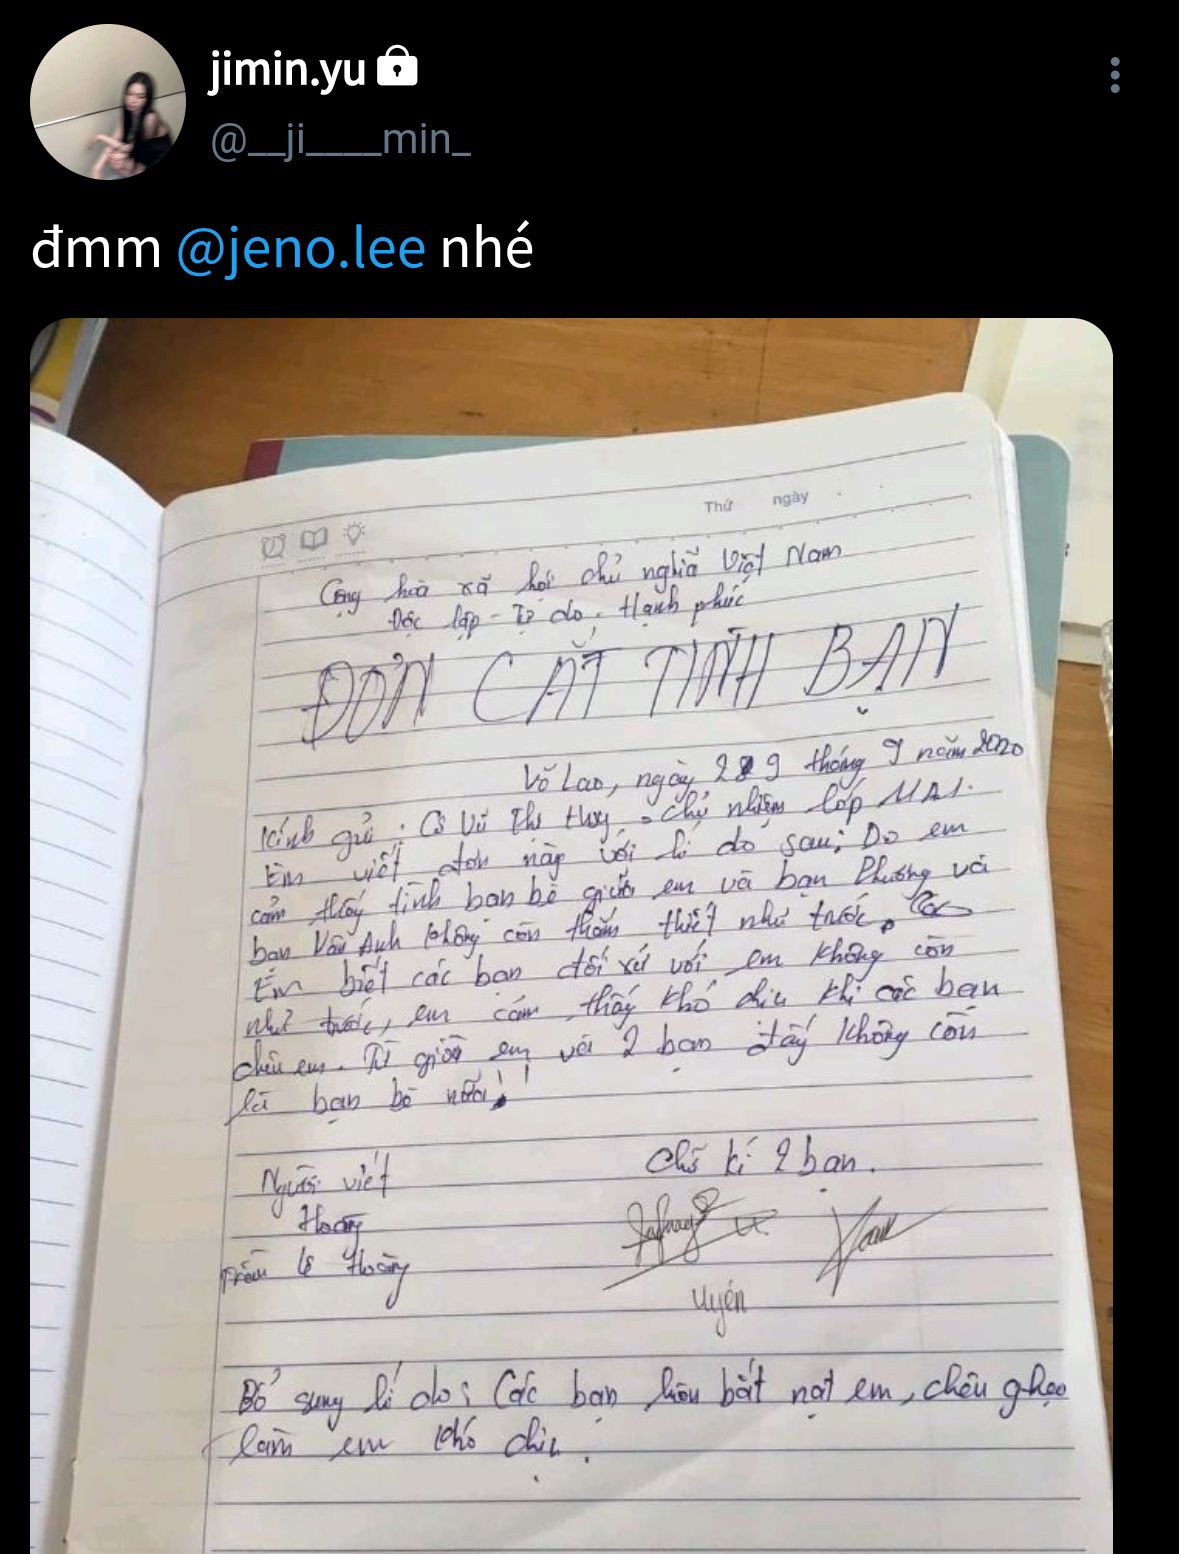 jimin.yu
@__ji____min_
đmm @jeno.lee nhé
Thứ ngày
Cộng hòa xã hội chủ nghĩa Việt Nam
Độc lập - Tự do - Hạnh phúc
ĐƠN CẮT TÌNH BẠN
Võ Lao, ngày 29 tháng 9 năm 2020
Kính gửi: Cô Vũ Thị Huy chủ nhiệm lớp 11A1.
Em viết đơn này với lí do sau: Do em
cảm thấy tình bạn bè giữa em và bạn Phương và
bạn Vân Anh không còn thắm thiết như trước.
Em biết các bạn đối xử với em không còn
như trước, em cảm thấy khó chịu khi các bạn
chêu em. Từ giờ em với 2 bạn ấy không còn
là bạn bè nữa!
Người viết
Chữ kí 2 bạn.
Hoàng
Trần Lê Hoàng
Uyên
Bổ sung lí do: Các bạn luôn bắt nạt em, chêu ghẹo
làm em khó chịu.